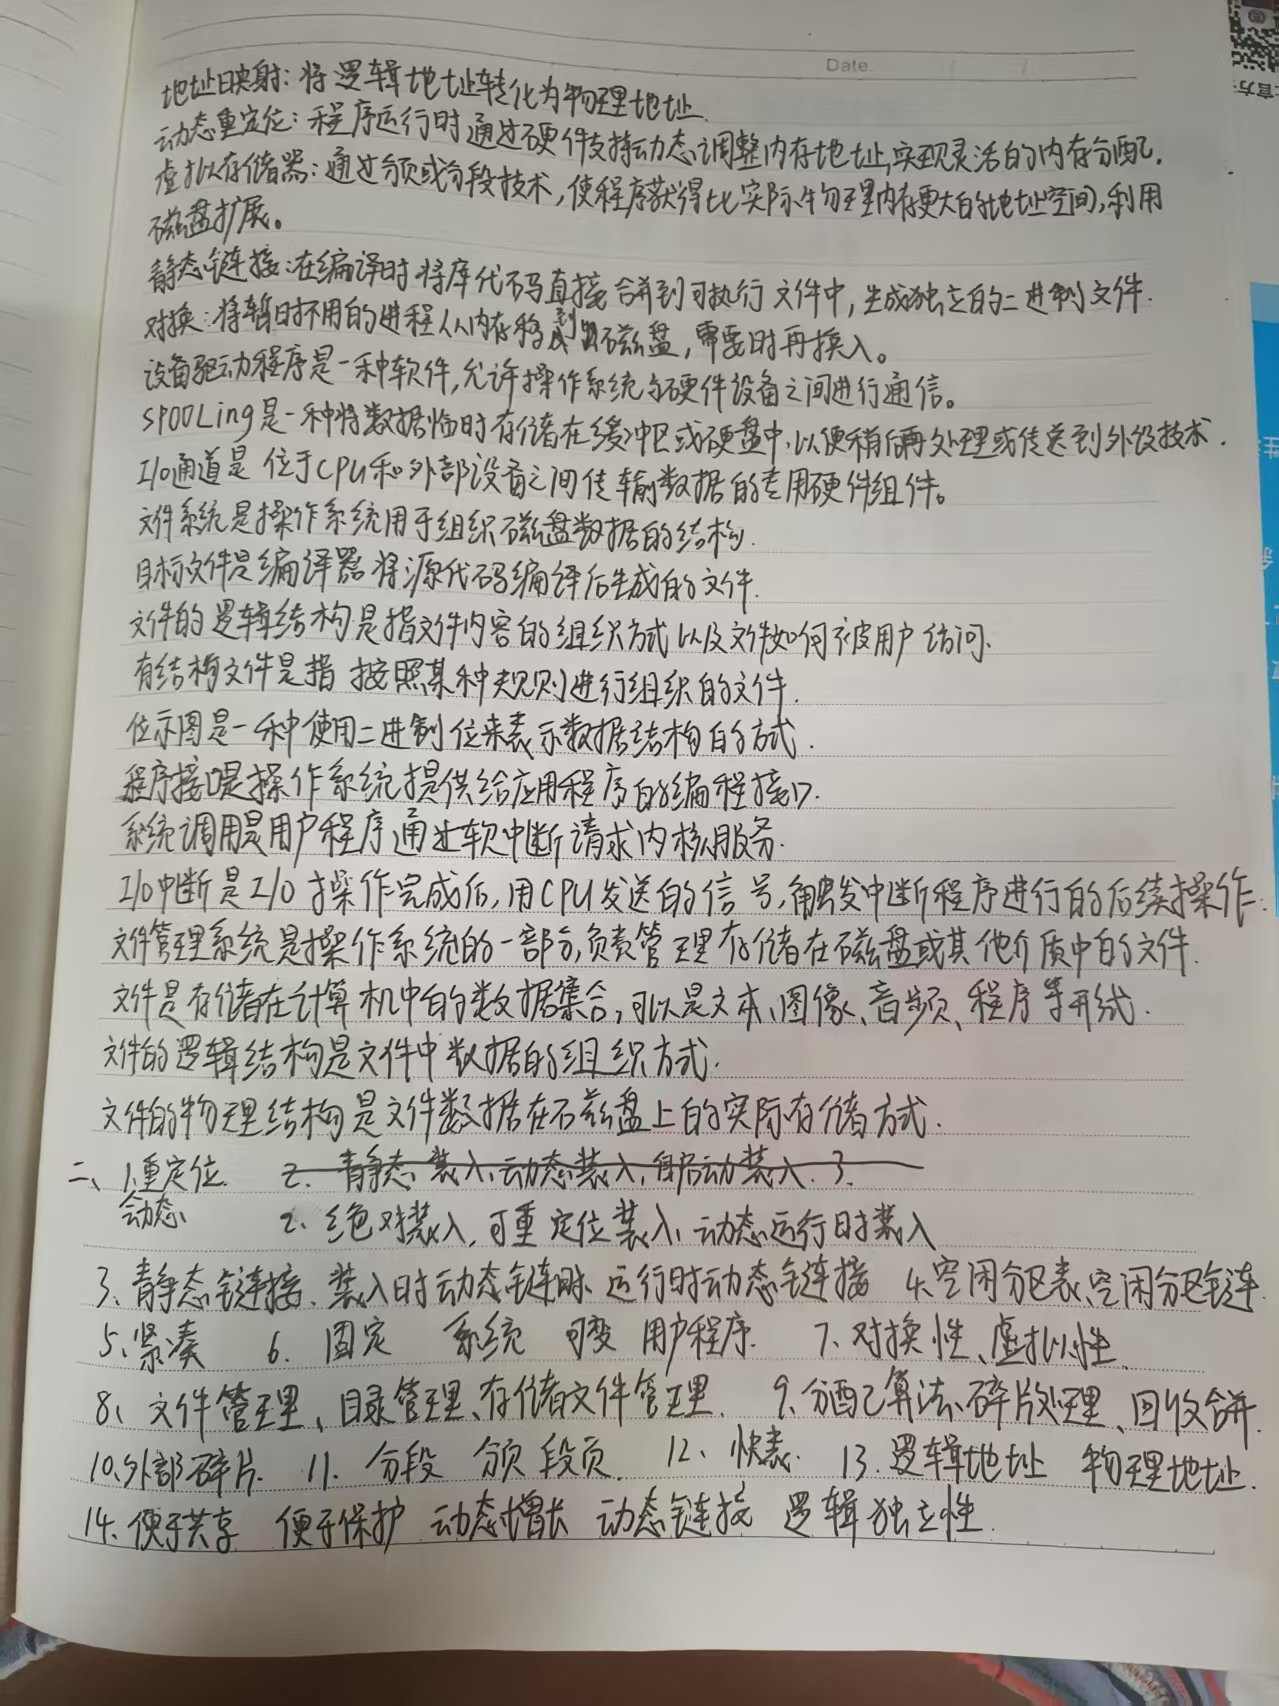 Date.
地址映射：将逻辑地址转化为物理地址.
动态重定位：程序运行时通过硬件支持动态调整内存地址,实现灵活的内存分配.
虚拟存储器：通过分页或分段技术,使程序获得比实际物理内存更大的地址空间,利用
磁盘扩展。
静态链接：在编译时将库代码直接合并到可执行文件中,生成独立的二进制文件.
对换：将暂时不用的进程从内存移到磁盘,需要时再换入。
设备驱动程序是一种软件,允许操作系统与硬件设备之间进行通信。
SPOOLing是一种将数据临时存储在缓冲区或硬盘中,以便稍后再处理或传送到外设技术.
I/o通道是位于CPU和外部设备之间传输数据的专用硬件组件。
文件系统是操作系统用于组织磁盘数据的结构.
目标文件是编译器将源代码编译后生成的文件.
文件的逻辑结构是指文件内容的组织方式以及文件如何被用户访问.
有结构文件是指按照某种规则进行组织的文件.
位示图是一种使用二进制位来表示数据结构的方式.
程序接口是操作系统提供给应用程序的编程接口.
系统调用是用户程序通过软中断请求内核服务.
I/o中断是I/O操作完成后,用CPU发送的信号,触发中断程序进行的后续操作.
文件管理系统是操作系统的一部分,负责管理存储在磁盘或其他介质中的文件.
文件是存储在计算机中的数据集合,可以是文本、图像、音频、程序等形式.
文件的逻辑结构是文件中数据的组织方式.
文件的物理结构是文件数据在磁盘上的实际存储方式.
二、1.重定位 2. 静态装入,动态装入,自启动装入. 3.
动态 2. 绝对装入,可重定位装入、动态运行时装入
3、静态链接、装入时动态链接、运行时动态链接 4.空闲分区表,空闲分区链
5、紧凑 6. 固定 系统 可变 用户程序. 7. 对换性、虚拟性.
8、文件管理、目录管理、存储文件管理. 9、分配算法、碎片处理、回收合并.
10、外部碎片. 11. 分段 分页 段页. 12、快表. 13.逻辑地址 物理地址.
14、便于共享 便于保护 动态增长 动态链接 逻辑独立性.